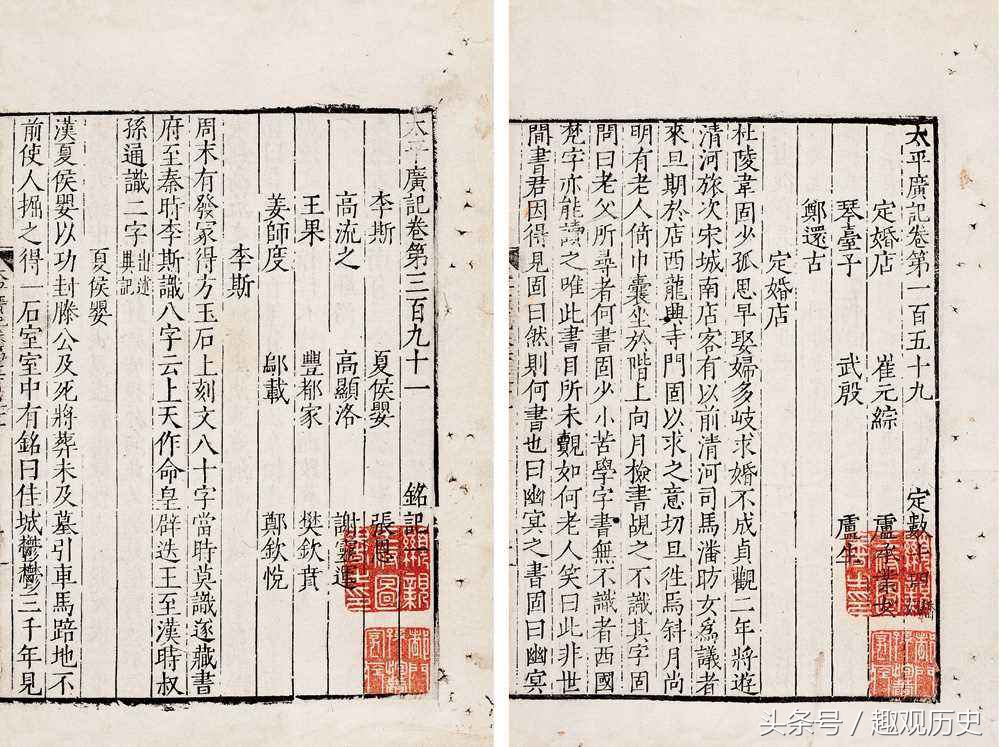 太平廣記卷第一百五十九 定數
定婚店 崔元綜 盧承業女
琴臺子 武殷 盧生
鄭還古
定婚店
杜陵韋固少孤思早娶婦多岐求婚不成貞觀二年將遊
清河旅次宋城南店客有以前清河司馬潘昉女爲議者
來旦期於店西龍興寺門固以求之意切旦徃焉斜月尚
明有老人倚巾囊坐於階上向月檢書覘之不識其字固
問曰老父所尋者何書固少小苦學字書無不識者西國
梵字亦能讀之唯此書目所未覿如何老人笑曰此非世
間書君因得見固曰然則何書也曰幽冥之書固曰幽冥
太平廣記卷第三百九十一 銘記一
李斯 夏侯嬰 張恩
高流之 高顯洛 謝靈運
王果 豐都冢 樊欽賁
姜師度 鄔載 鄭欽悅
李斯
周末有發冢得方玉石上刻文八十字當時莫識遂藏書
府至秦時李斯識八字云上天作命皇辟迭王至漢時叔
孫通識二字 出述異記
夏侯嬰
漢夏侯嬰以功封滕公及死將葬未及墓引車馬踣地不
前使人掘之得一石室室中有銘曰佳城鬱鬱三千年見
头条号 / 趣观历史